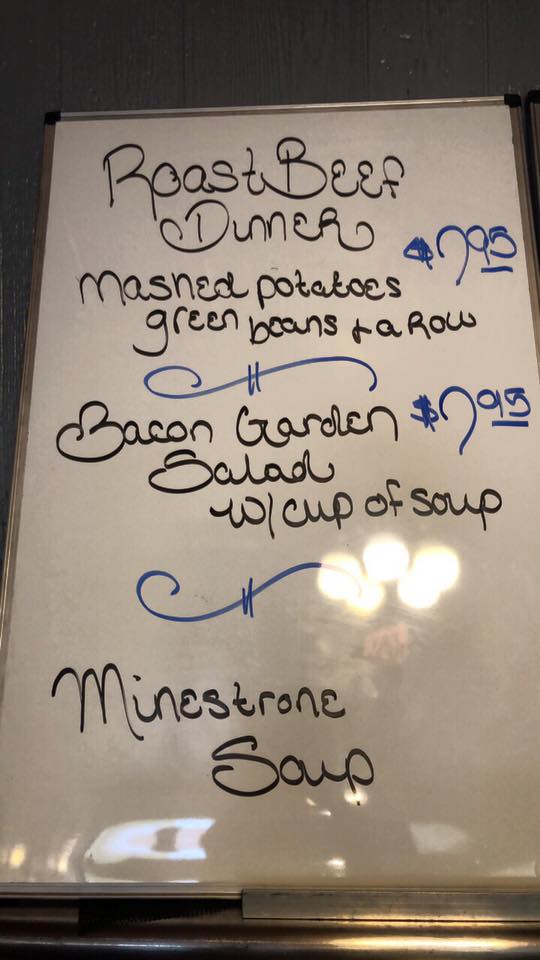 Roast Beef
Dinner
$7.95
Mashed potatoes
green beans & a Roll
Bacon Garden $7.95
Salad
w/ cup of soup
Minestrone
Soup